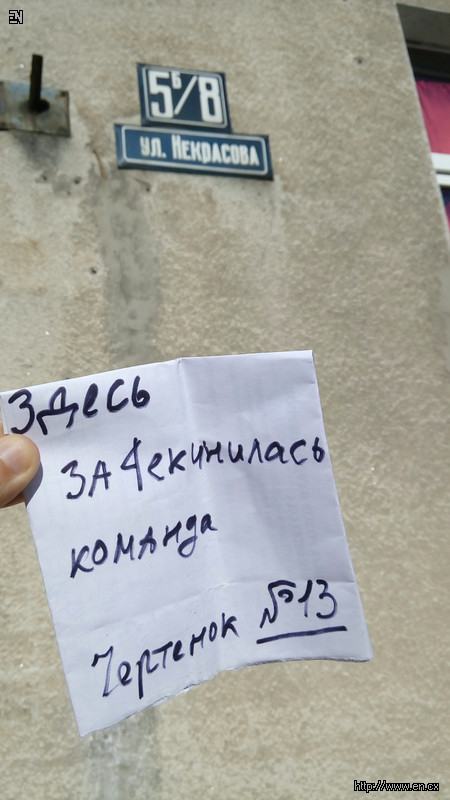 EN
5Б/8
УЛ. НЕКРАСОВА
ЗДеСЬ
ЗАЧекинилась
команда
Чертенок №13
http://www.en.cx